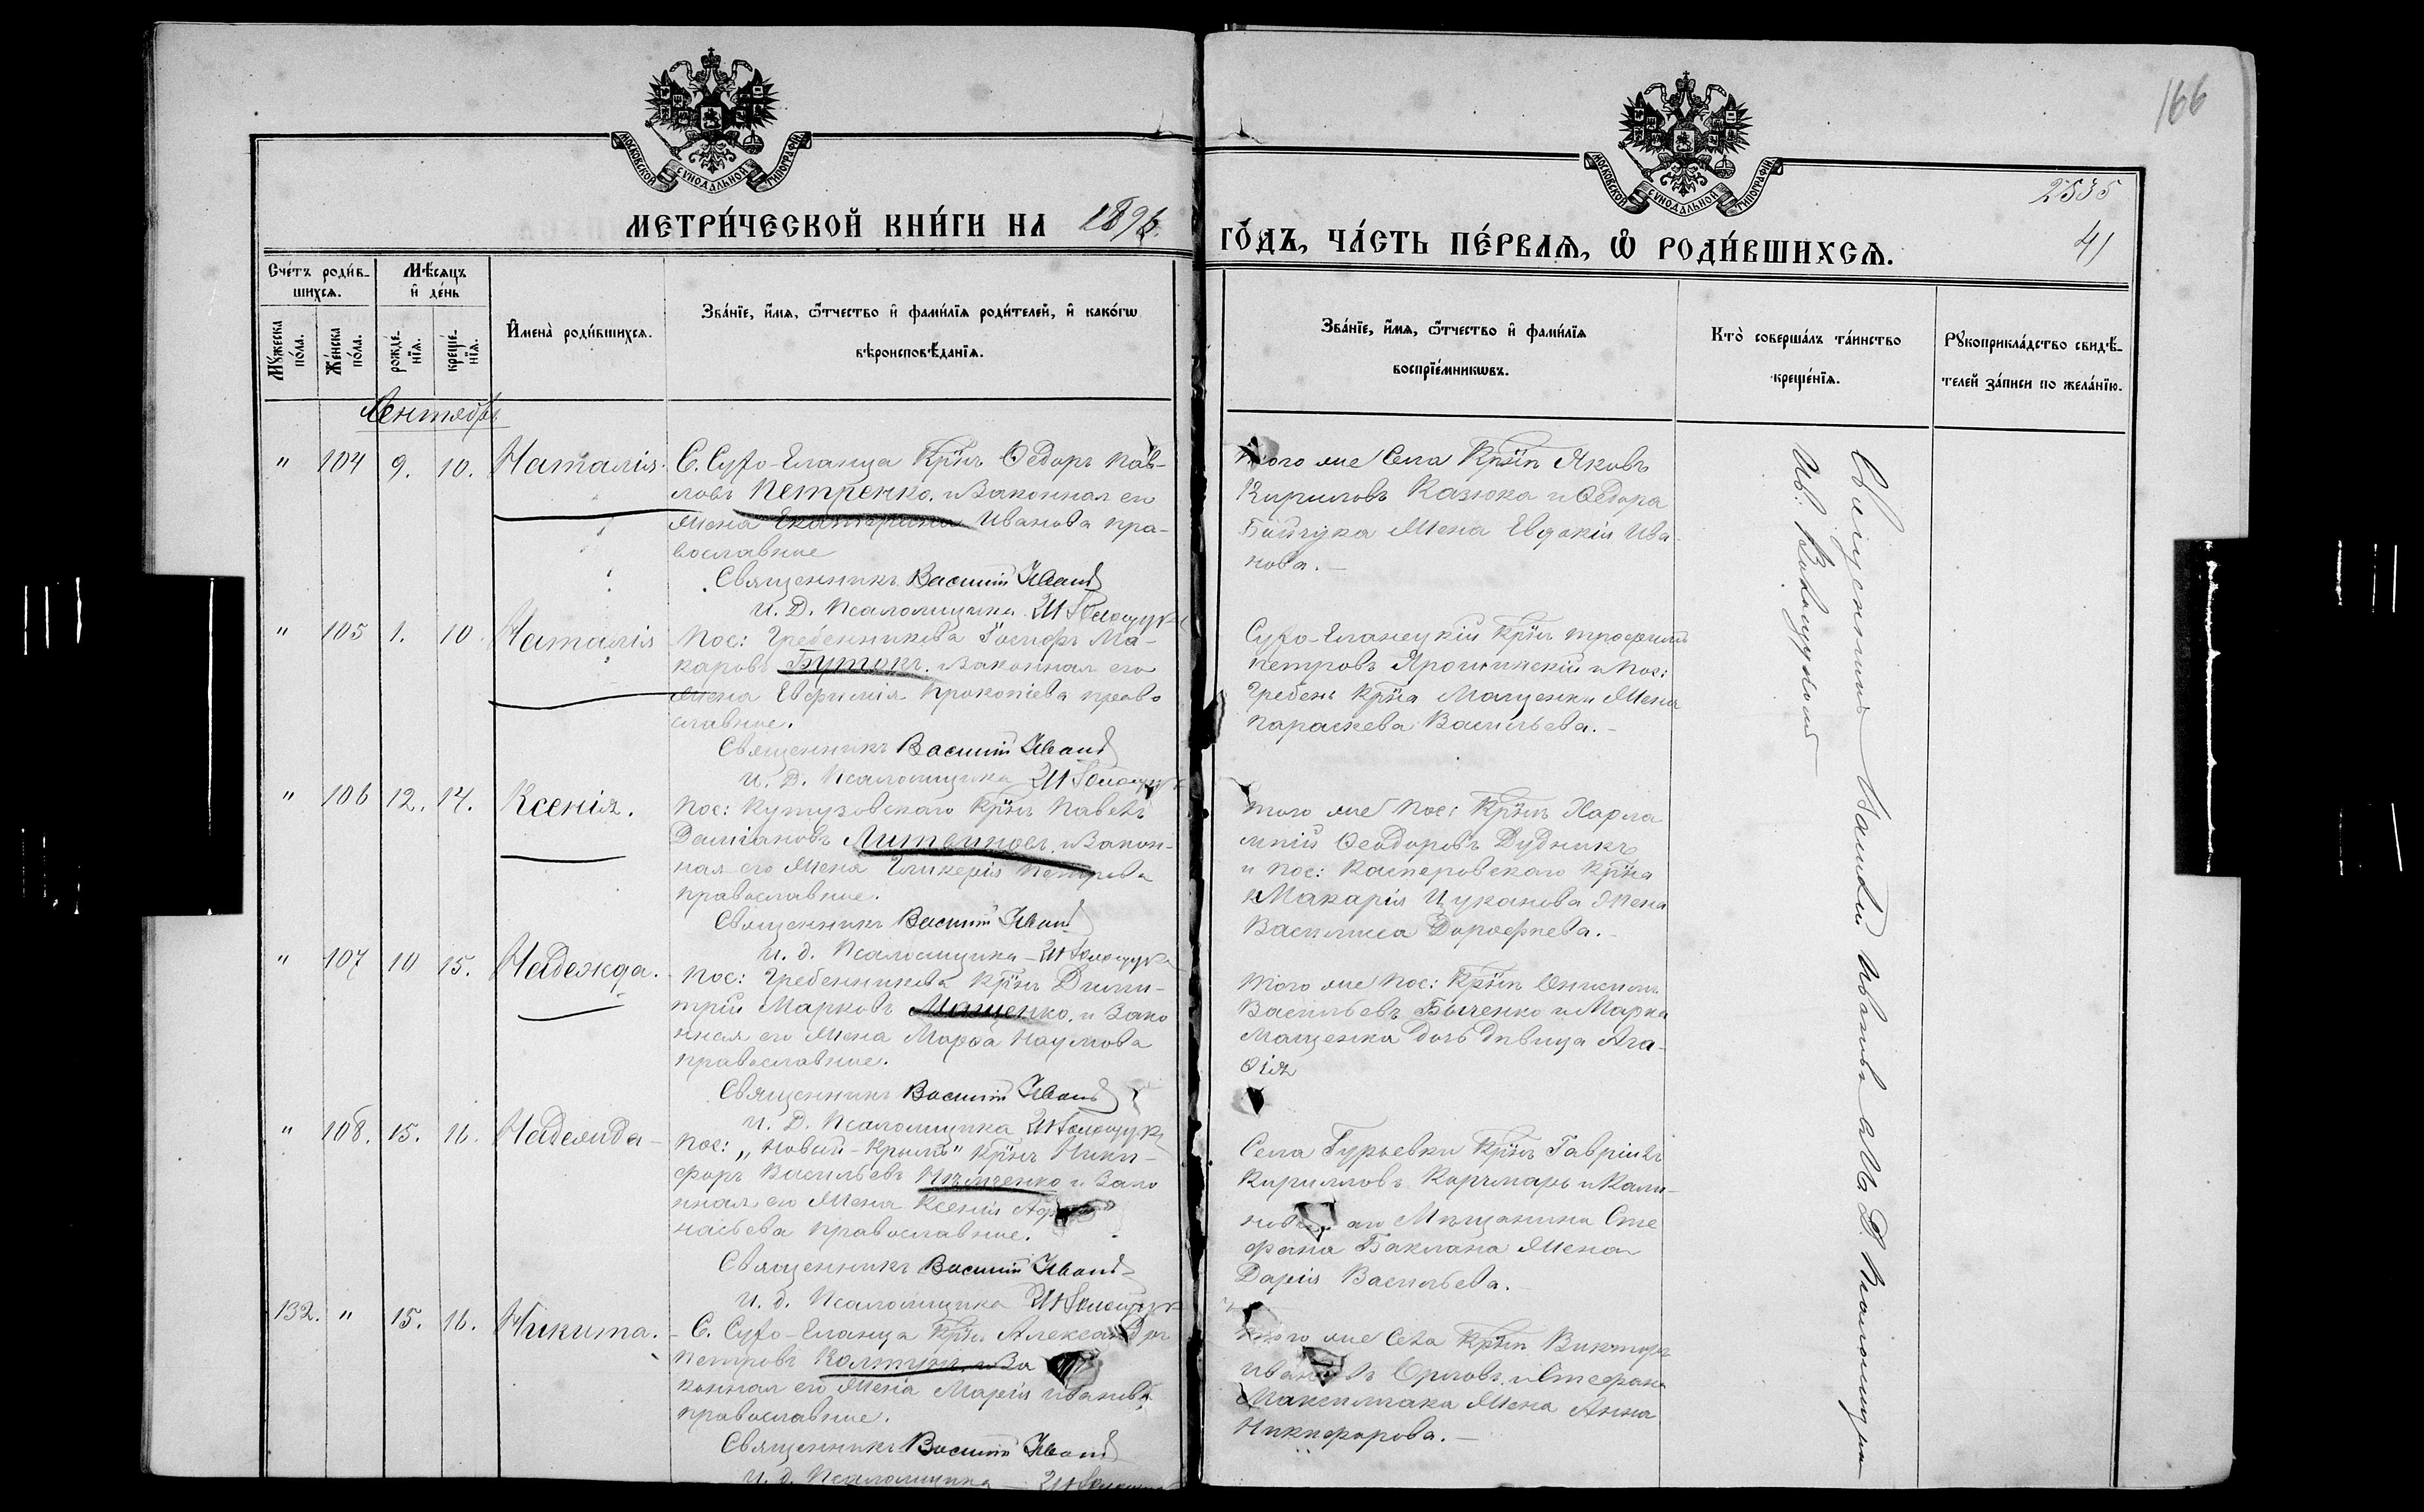 166
МОСКОВСКОЙ СѴНОДАЛЬНОЙ ТИПОГРАФІИ
МОСКОВСКОЙ СѴНОДАЛЬНОЙ ТИПОГРАФІИ
2535
41
МЕТРИ́ЧЕСКОЙ КНИ́ГИ НА 189
ГО́ДЪ, ЧА́СТЬ ПЕ́РВАѦ, Ѡ҆ РОДИ́ВШИХСѦ.
Сче́тъ роди́в-
шихсѧ.
Мꙋ́жеска
по́ла.
Же́нска
по́ла.
Мѣ́сѧцъ
и҆ де́нь
рожде́-
нїѧ.
креще́-
нїѧ.
И҆мена̀ роди́вшихсѧ.
Зва́нїе, и҆́мѧ, ѻ҆́тчество и҆ фами́лїѧ роди́телей, и҆ како́гѡ
вѣроисповѣ́данїѧ.
Зва́нїе, и҆́мѧ, ѻ҆́тчество и҆ фами́лїѧ
воспрїе́мникѡвъ.
Кто̀ соверша́лъ та́инство
креще́нїѧ.
Рꙋкоприкла́дство свидѣ́-
телей за́писи по жела́нїю.
Сентябрь
" 104 9. 10. Наталія.
С. Сухо-Еланца Крнъ Ѳедоръ Пав-
ловъ Петренко. и Законная его
жена Екатерина Иванова пра-
вославные
Священникъ Василій Иванов
И. Д. Псаломщика
того же Села Крнъ Яковъ
Кириловъ Казюка и Ѳедора
жена Евдокія Ива-
нова. —
" 105 1. 10. Наталія
Пос: Гребенникова Іосифъ Ма-
каровъ Бутокъ. и Законная его
жена Евфимія Прокопіева право
славные.
Священникъ Василій Иванов
И. Д. Псаломщика
Сухо-Еланецкій Крнъ Трофимъ
Петровъ Ярошинскій и Пос:
Гребен: Крна Мащенки жена
Параскева Васильева. —
" 106 12. 14. Ксенія.
Пос: Кутузовскаго Крнъ Павелъ
Даміановъ Литвиновъ. и Закон-
ная его жена Гликерія Петрова
православные.
Священникъ Василій Иванов
И. д. Псаломщика
того же Пос: Крнъ Харла
мпій Ѳеодоровъ Дудникъ
и Пос: Касперовскаго Крна
Макарія Цуканова жена
Василиса Дорофеева. —
" 107 10 15. Надежда.
Пос: Гребенникова Крнъ Дими-
трій Марковъ Мащенко. и Зако
нная его жена Марѳа Наумова
православные.
Священникъ Василій Иванов
И. Д. Псаломщика
того же Пос: Крнъ Онисимъ
Васильевъ Быченко и Марка
Мащенка дочь дѣвица Ага-
ѳія
" 108. 15. 16. Надежда
Пос: „Новый-Крымъ" Крнъ Ники-
форъ Васильевъ и Зако
нная его жена Ксенія
насьева православные.
Священникъ Василій Иванов
И. д. Псаломщика
Села Гурьевки Крнъ Гавріилъ
Кирилловъ Корчмарь и
Мѣщанина Сте
фана Баклана жена
Дарія Васильева. —
132. " 15. 16. Никита.
С. Сухо-Еланца Крнъ Александръ
Петровъ Колтунъ. и За
конная его жена Марія Иванова
православные.
Священникъ Василій Иванов
И. д. Псаломщика
того же Села Крнъ Викторъ
Орловъ и Стефана
Максимака жена Анна
Никифорова. —
Священникъ Василій Ивановъ